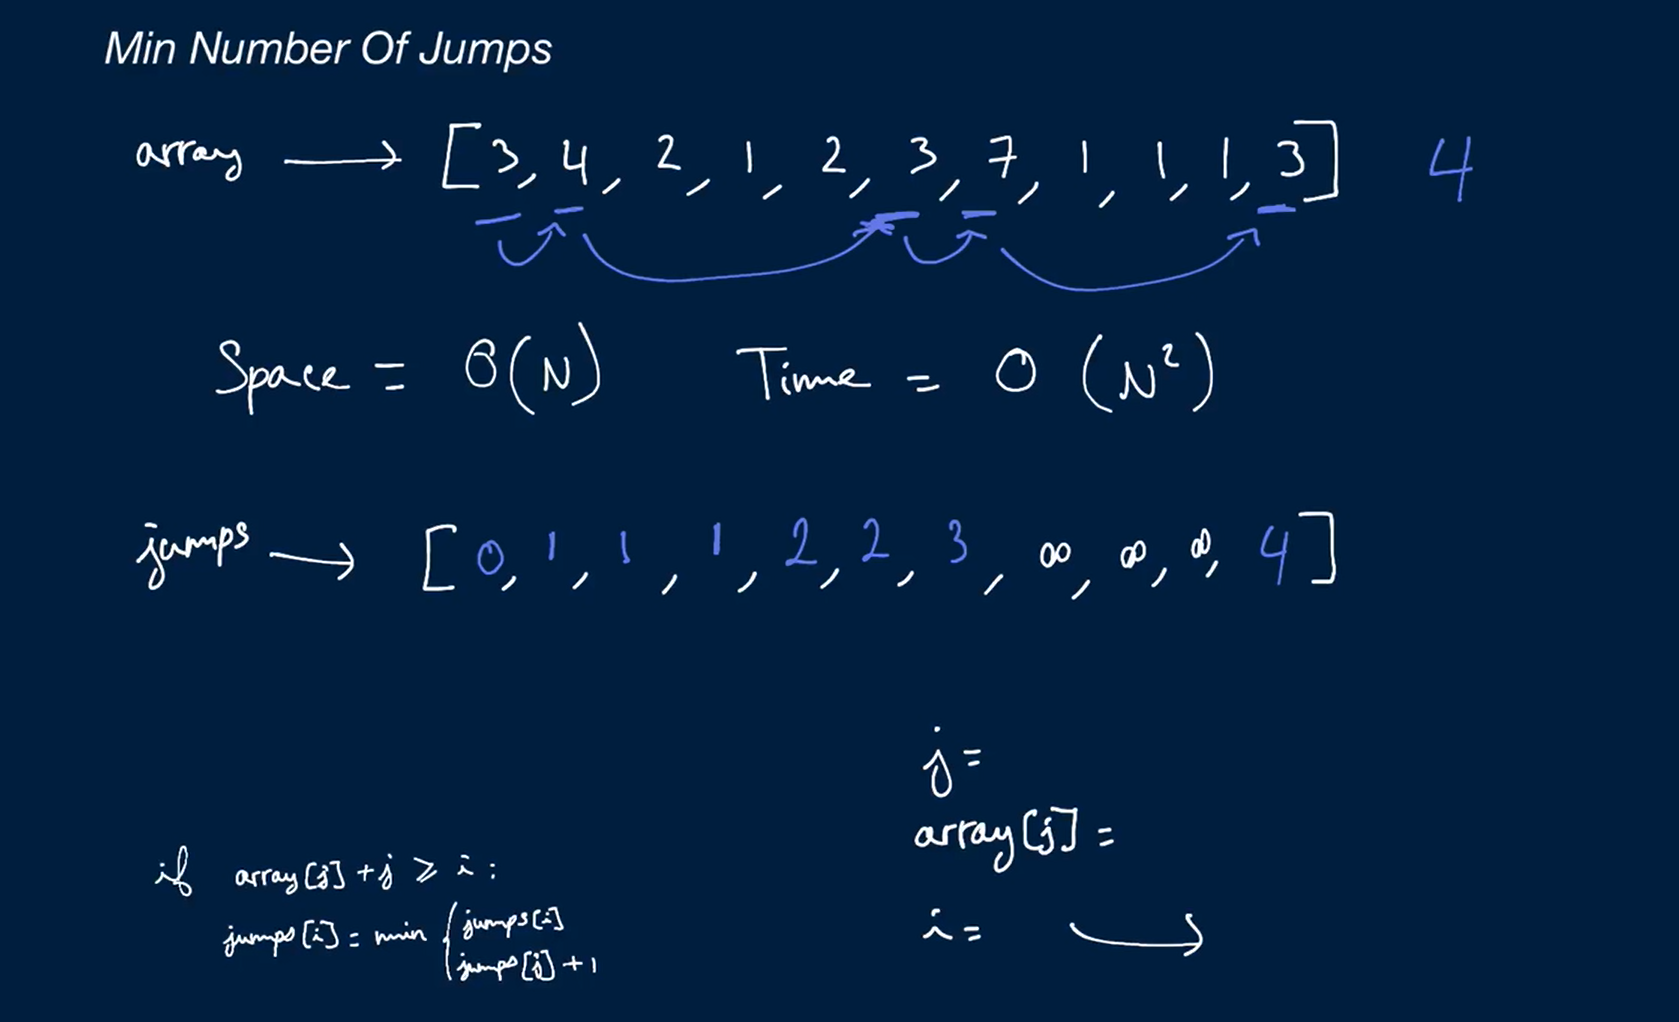 Min Number Of Jumps
array → [3, 4, 2, 1, 2, 3, 7, 1, 1, 1, 3] 4
Space = O(N) Time = O(N²)
jumps → [0, 1, 1, 1, 2, 2, 3, ∞, ∞, ∞, 4]
j =
array[j] =
if array[j] + j ≥ i :
jumps[i] = min { jumps[i]
jumps[j] + 1
i = →